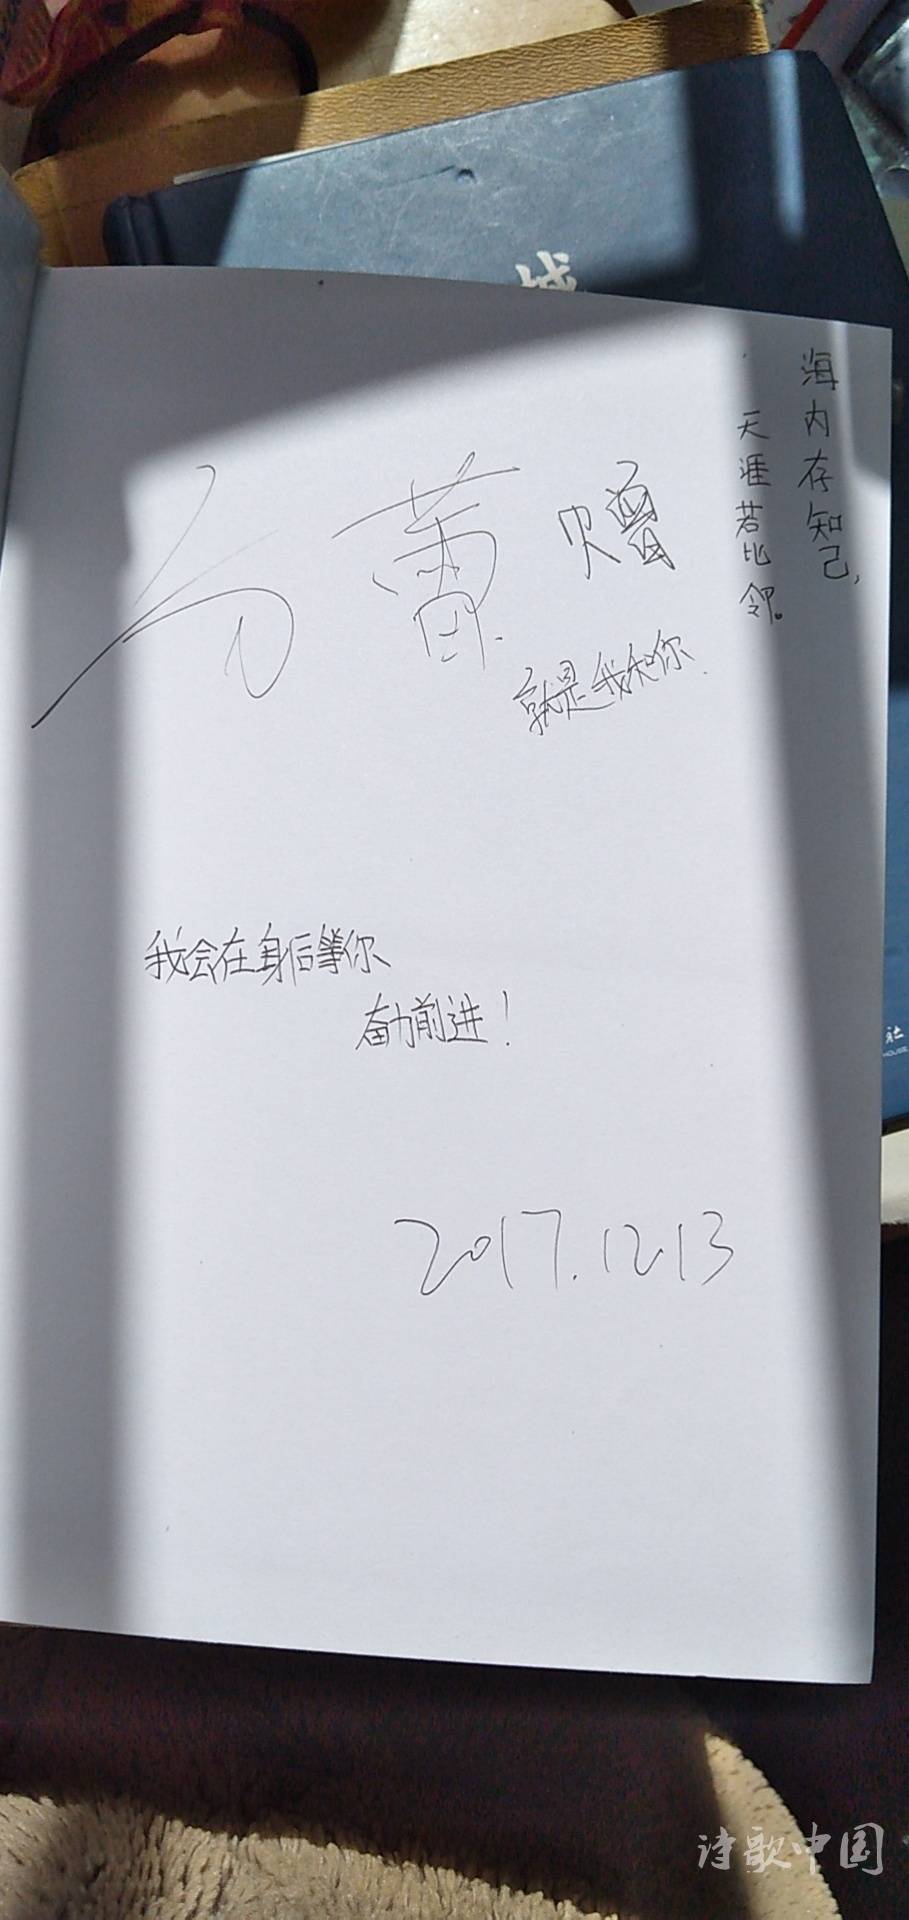 城
海内存知己,
天涯若比邻。
赠
就是我和你.
我会在身后等你
奋力前进!
2017.12.13
社
HOUSE
诗歌中国